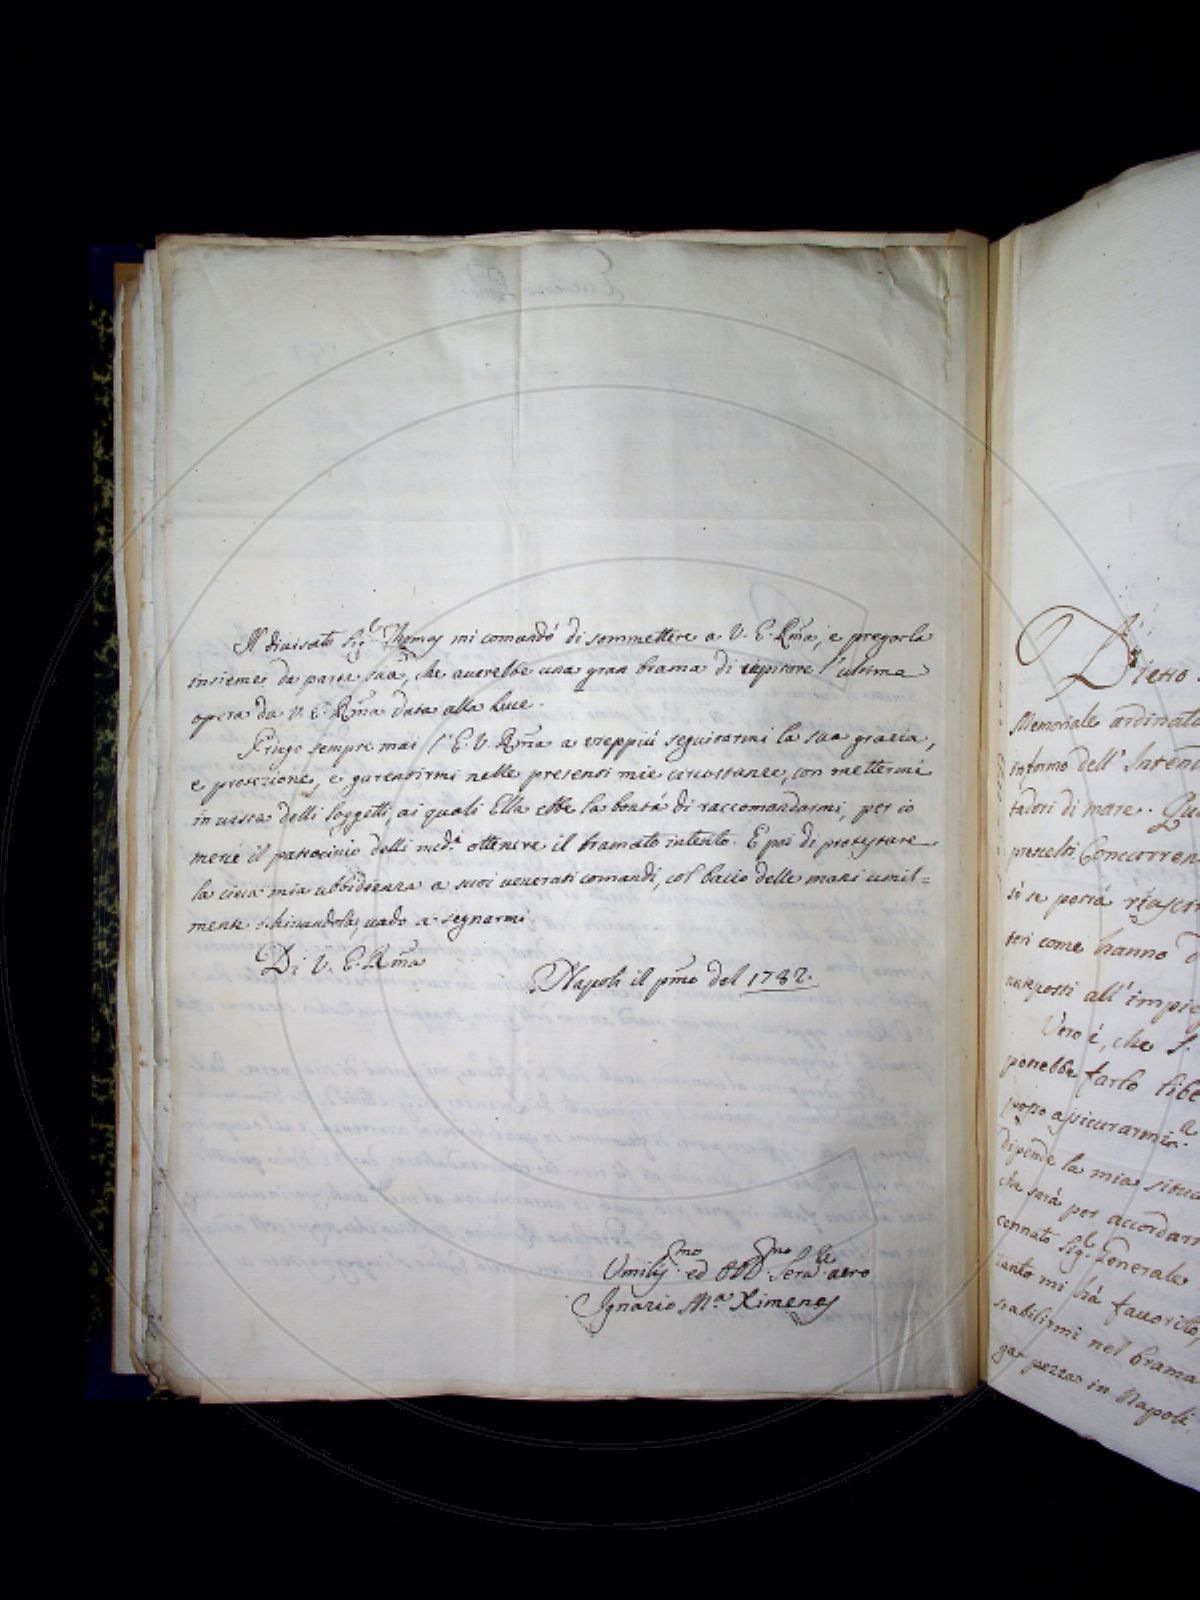 Il divisato Sig.r Thomas mi comandò di sommettere a V. E. Rma, e pregarla
insieme da parte sua, che averebbe una gran brama di capitare l'ultima
opera da V. E. Rma data alla luce.
Priego sempre mai l'E. V. Rma a vieppiú seguitarmi la sua grazia,
e protezione, e garentirmi nelle presenti mie circostanze, con mettermi
in vista delli Soggetti, ai quali Ella ebbe la bontà di raccomandarmi, per io
mercè il patrocinio delli med.i ottenere il bramato intento. E poi di protestare
la cieca mia ubbidienza a suoi venerati comandi, col bacio delle mani umil=
mente inchinandola, vado a segnarmi
Di V. E. Rma
Napoli il pmo del 1782.
Umiliss.mo ed Obb.mo Serv.le vero
Ignazio M.a Ximenes
Dietro
Memoriale ordinato
informo dell' Intend
tadori di mare.
prescelti Concorren
si se potrà riascir
teri come hanno
supposti all' impie
Vero è, che S.
potrebbe farlo libe
posso assicurarmi.
dipende la mia situa
che sarà per accordarm
cennato Sig.l Generale
tanto mi hà favorito,
stabilirmi nel brama
ga pezza in Napoli,